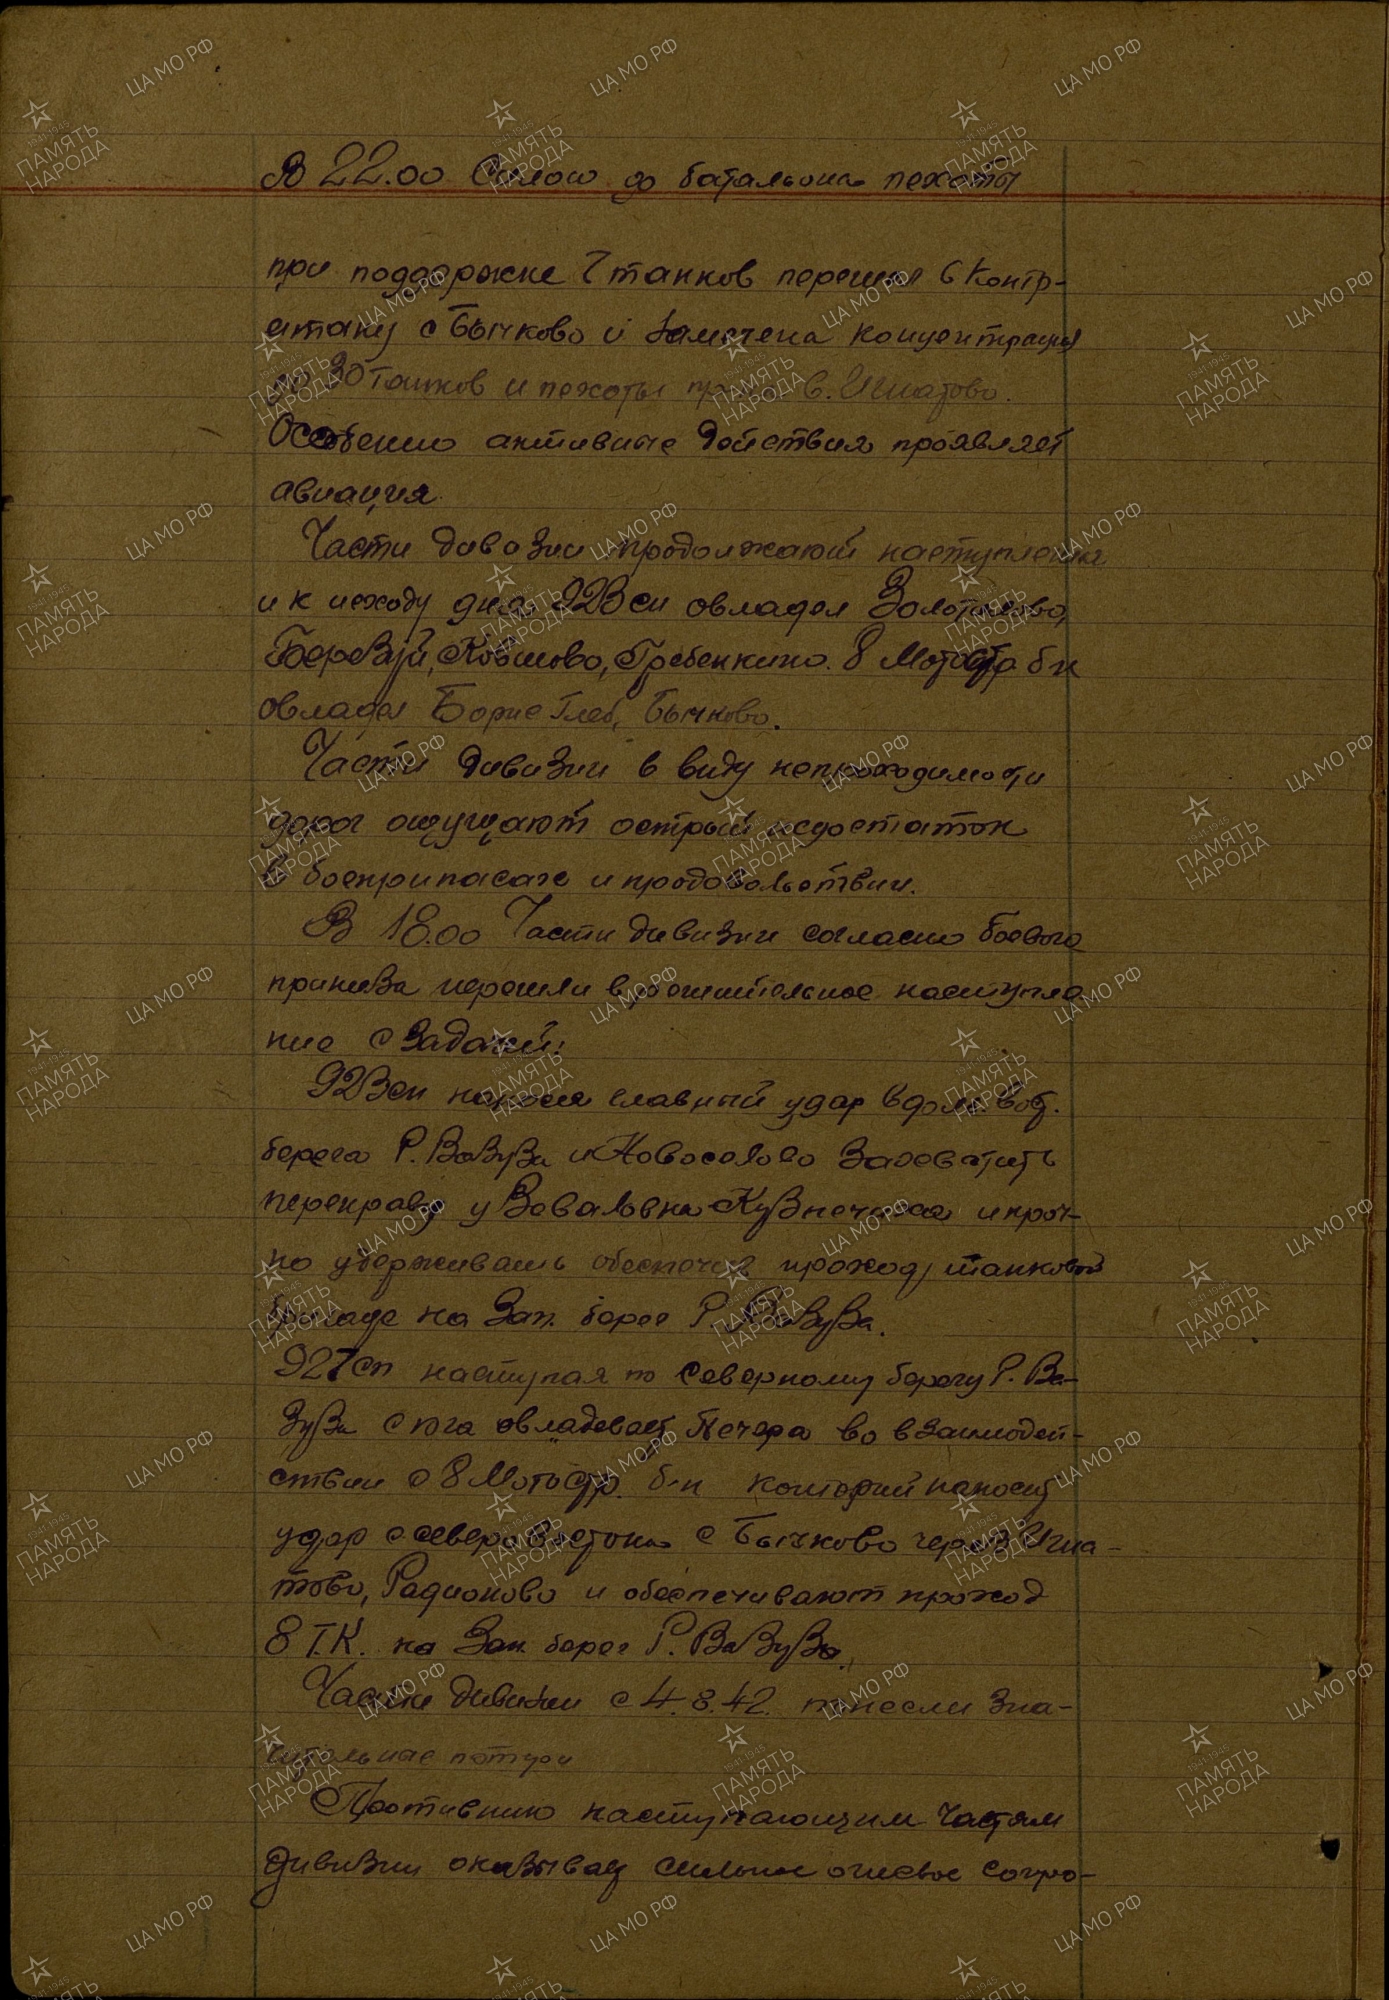 В 22.00 Силою до батальона пехоты
при поддержке 7 танков перешел в контр-
атаку с Бычково и замечена концентрация
до 30 танков и пехоты в. Игнатово.
Особенно активные действия проявляет
авиация.
Части дивизии продолжают наступление
и к исходу дня 923 сп овладел Золотилово,
Березуй, Ковшово, Гребенкино. 8 Мотостр бн
овладел Борис Глеб, Бычково.
Части дивизии в виду непроходимости
дорог ощущают острый недостаток
в боеприпасах и продовольствии.
В 18.00 Части дивизии согласно боевого
приказа перешли в решительное наступле
ние с задачей:
923 сп нанося главный удар вдоль вост.
берега Р. Вазуза и Новоселово захватить
переправу у Кузнечиха и проч-
но удерживать обеспечив проход танковой
бригаде на Зап. берег Р. Вазуза.
927 сп наступая по северному берегу Р. Ва-
зуза с юга овладевает Печора во взаимодей-
ствии с 8 Мотостр. б-н который наносит
удар с северо востока с Бычково через Игна-
тово, Радионово и обеспечивают проход
8 Т.К. на Зап. берег Р. Вазуза.
Части дивизии с 4.8.42. понесли зна-
чительные потери
Противник наступающим частям
дивизии оказывал сильное огневое сопро-
ЦА МО РФ
1941-1945
ПАМЯТЬ
НАРОДА